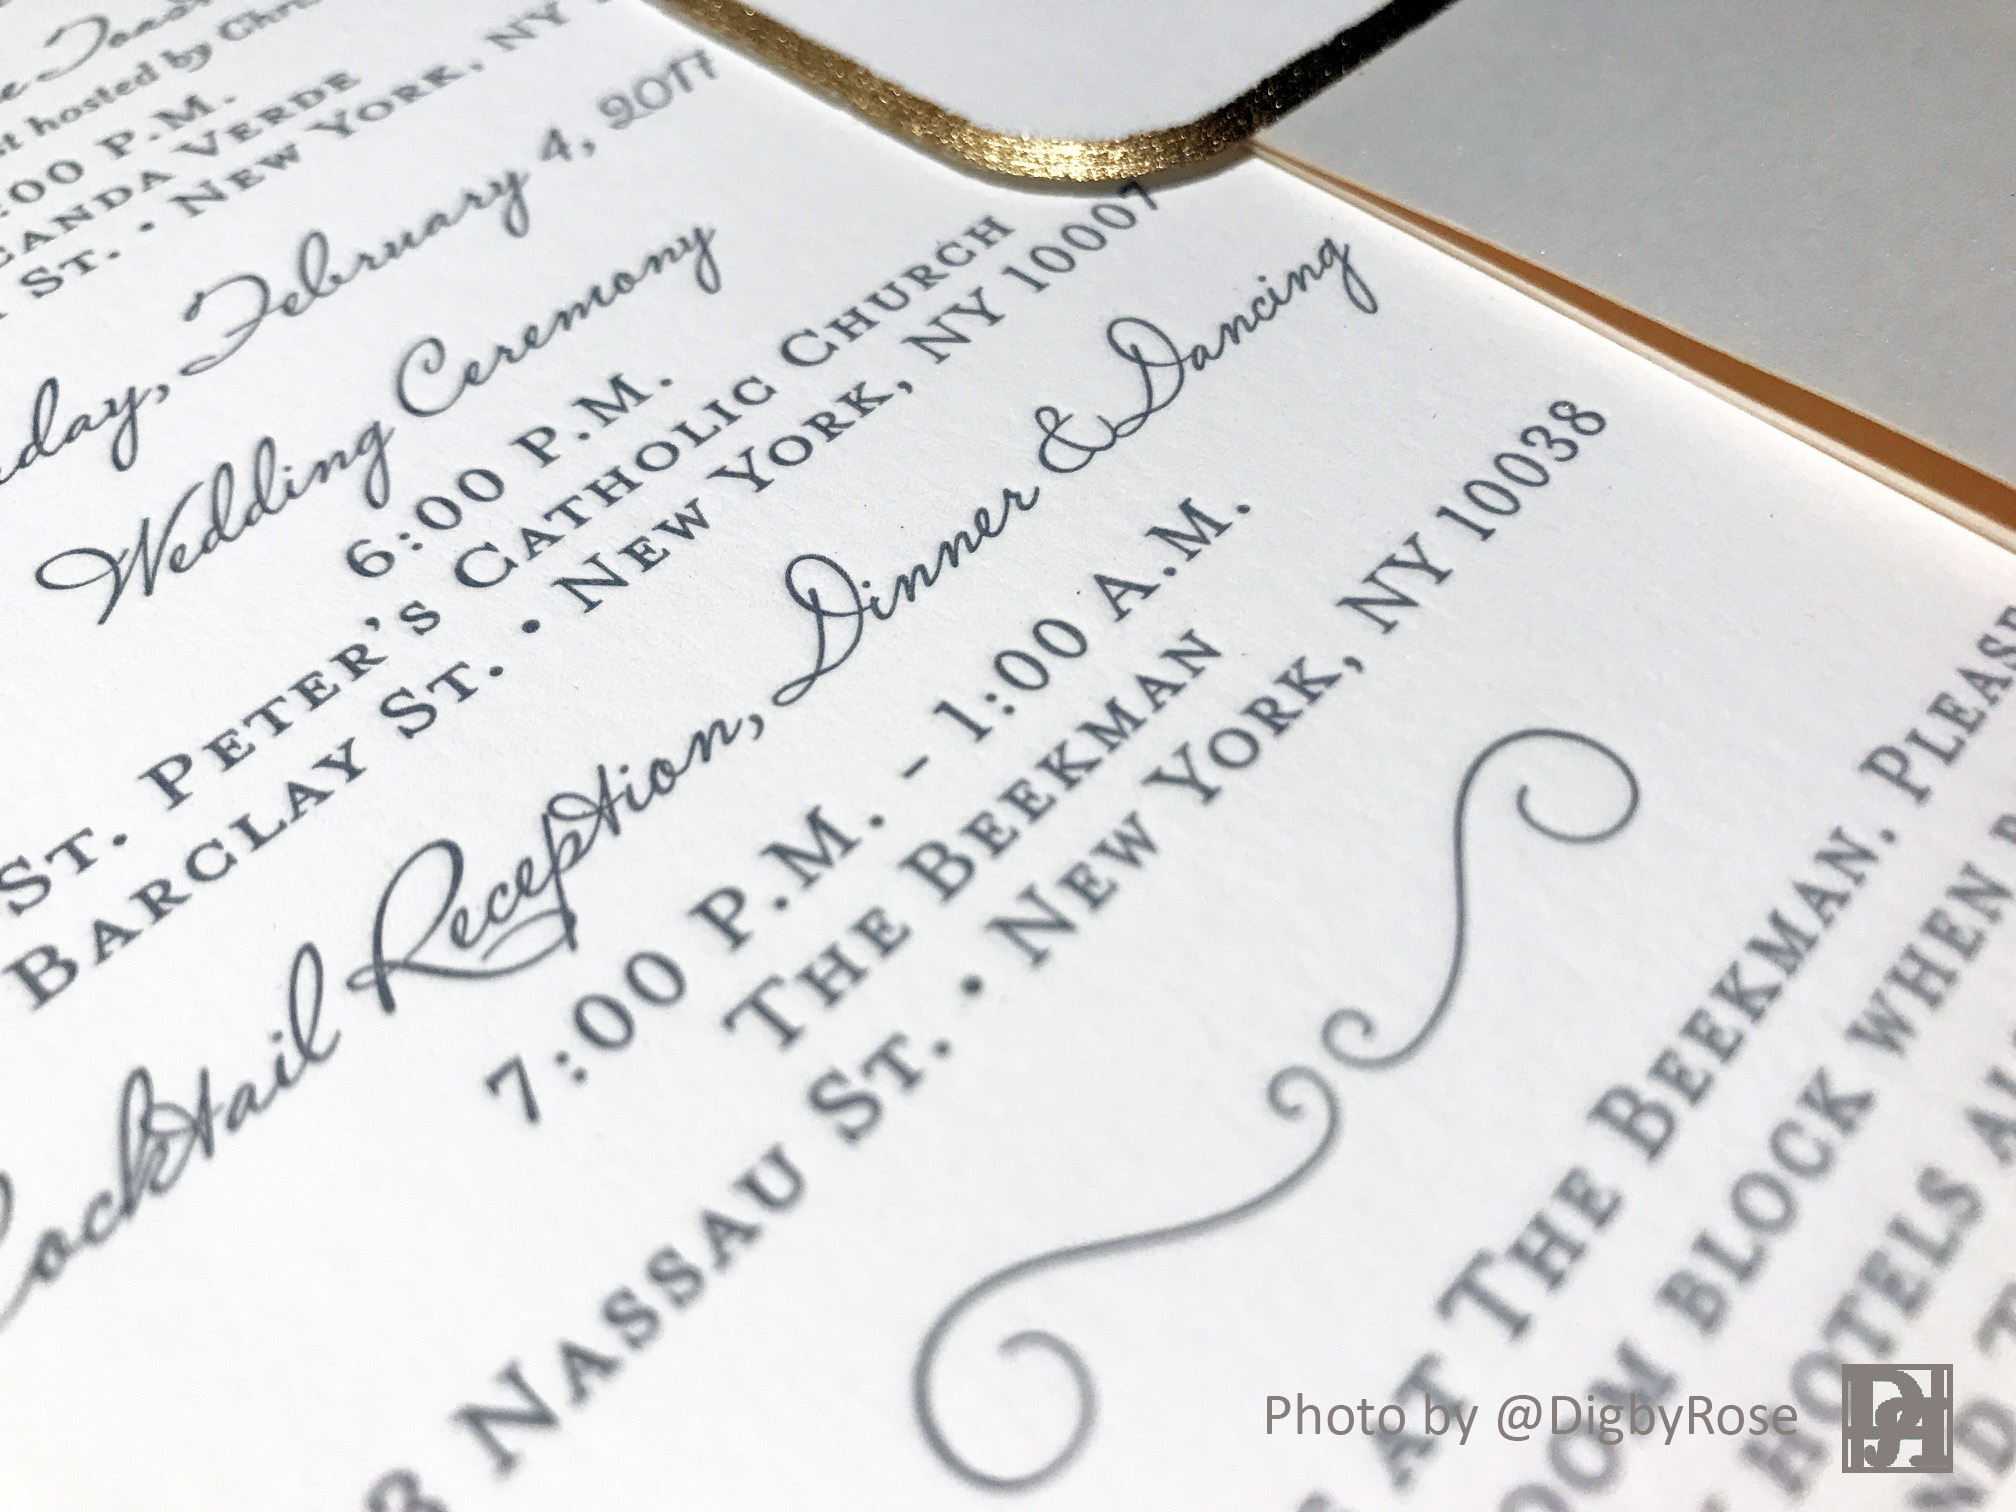 hosted by
:00 P.M.
ANDA VERDE
ST. • NEW YORK, NY
day, February 4, 2017
Wedding Ceremony
6:00 P.M.
ST. PETER'S CATHOLIC CHURCH
BARCLAY ST. • NEW YORK, NY 10007
Cocktail Reception, Dinner & Dancing
7:00 P.M. - 1:00 A.M.
THE BEEKMAN
NASSAU ST. • NEW YORK, NY 10038
AT THE BEEKMAN. PLEASE
OOM BLOCK WHEN
HOTELS
Photo by @DigbyRose